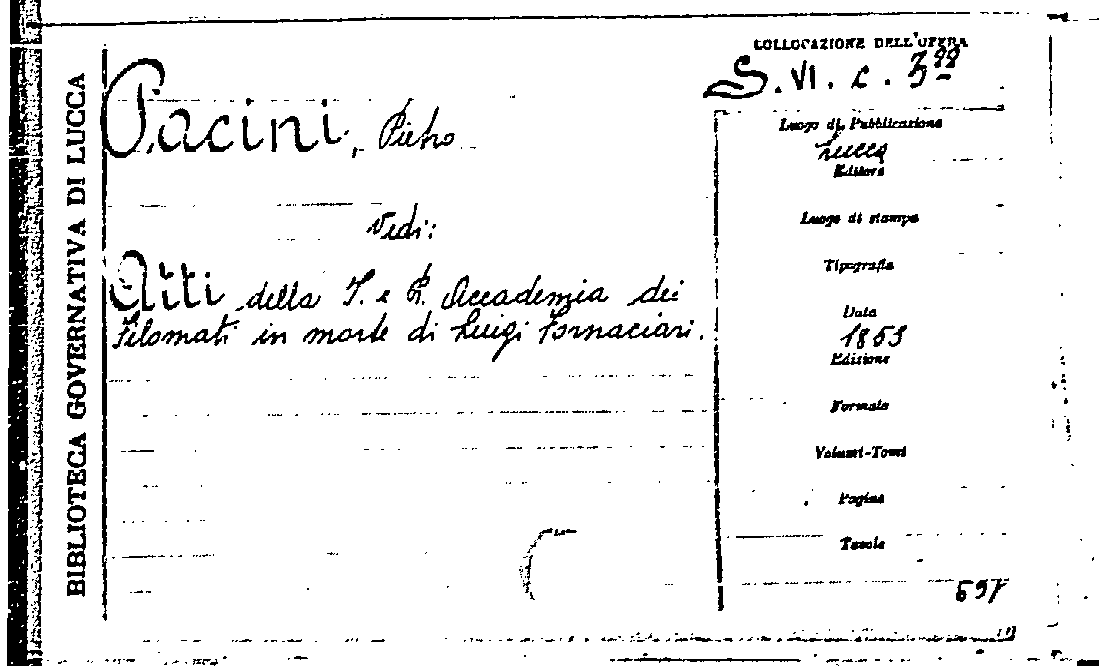 BIBLIOTECA GOVERNATIVA DI LUCCA
COLLOCAZIONE DELL'OPERA
S. VI. c.
Pacini, Pietro
Vedi:
Atti della I. e R. Accademia dei
Filomati in morte di Luigi Fornaciari.
Luogo di Pubblicazione
Lucca
Editore
Luogo di stampa
Tipografia
Data
Edizione
Formato
Volumi-Tomi
Pagine
Tavole